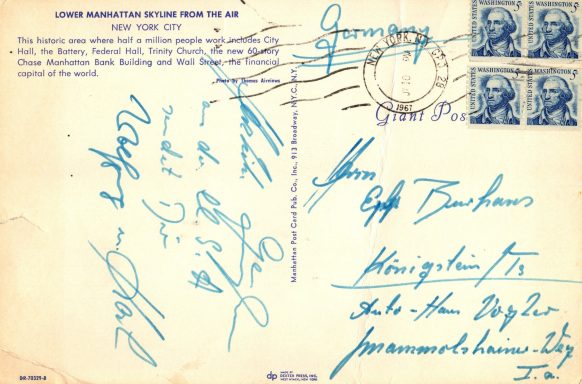 LOWER MANHATTAN SKYLINE FROM THE AIR
NEW YORK CITY
This historic area where half a million people work includes City
Hall, the Battery, Federal Hall, Trinity Church, the new 60-story
Chase Manhattan Bank Building and Wall Street, the financial
capital of the world.
Photo by Thomas Airviews
Germany
NEW YORK, N.Y.
1967
UNITED STATES
WASHINGTON 5¢
UNITED STATES
WASHINGTON 5¢
UNITED STATES
WASHINGTON 5¢
UNITED STATES
WASHINGTON 5¢
Giant Pos
an die
sendet Dir
Manhattan Post Card Pub. Co., Inc., 913 Broadway, N.Y.C., N.Y.
Herrn
Königstein/Ts
Auto-Haus Vogler
Mammolshainer-Weg
I.a.
DR-70329-B
dp
MADE BY
DEXTER PRESS, INC.
WEST NYACK, NEW YORK